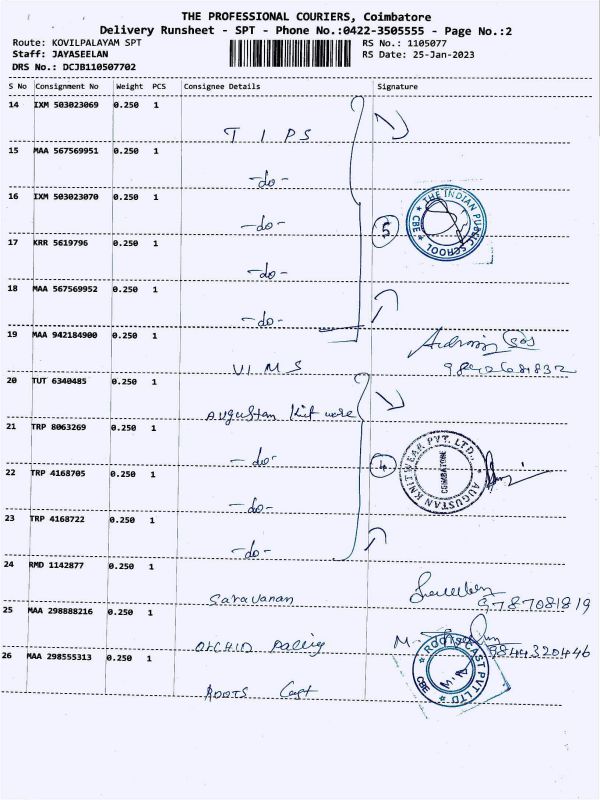 THE PROFESSIONAL COURIERS, Coimbatore
Delivery Runsheet - SPT - Phone No.:0422-3505555 - Page No.:2
Route: KOVILPALAYAM SPT
RS No.: 1105077
Staff: JAYASEELAN
RS Date: 25-Jan-2023
DRS No.: DCJB110507702
S No Consignment No Weight PCS Consignee Details Signature
14 IXM 503023069 0.250 1
T I P S
15 MAA 567569951 0.250 1
-do-
16 IXM 503023070 0.250 1
-do-
5
THE INDIAN PUBLIC SCHOOL
* CBE *
17 KRR 5619796 0.250 1
-do-
18 MAA 567569952 0.250 1
-do-
19 MAA 942184900 0.250 1
VIMS
20 TUT 6340485 0.250 1
Augustan Knit ware
21 TRP 8063269 0.250 1
-do-
4
AUGUSTAN KNITWEAR PVT. LTD.,
COIMBATORE
22 TRP 4168705 0.250 1
-do-
23 TRP 4168722 0.250 1
-do-
24 RMD 1142877 0.250 1
Saravanan
9787081819
25 MAA 298888216 0.250 1
9844320446
26 MAA 298555313 0.250 1
ROOTS CAST PVT LTD
CBE
ROOTS Cast